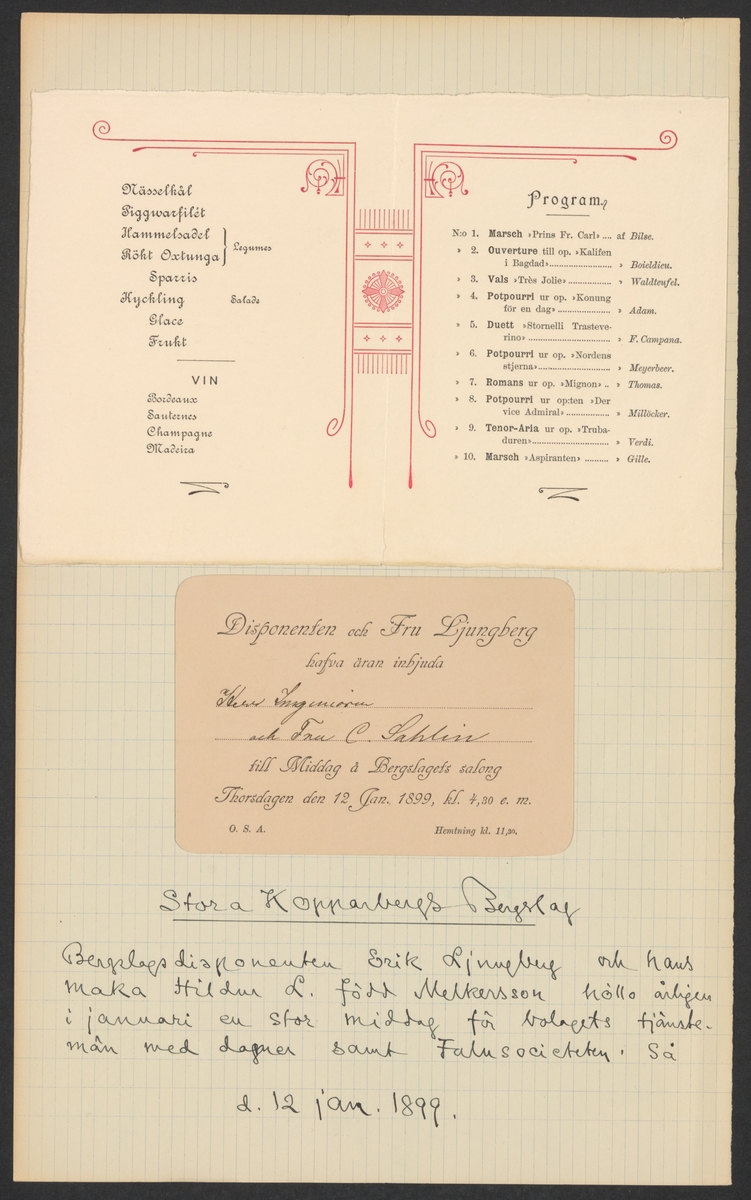 Nässelkål
Piggvarfilét
Hammelsadel
Rökt Oxtunga } Legumes
Sparris
Kyckling Salade
Glace
Frukt
VIN
Bordeaux
Sauternes
Champagne
Madeira
Program.
N:o 1. Marsch »Prins Fr. Carl» .... af Bilse.
» 2. Ouverture till op. »Kalifen
i Bagdad» .......................... » Boieldieu.
» 3. Vals »Très Jolie» .................. » Waldteufel.
» 4. Potpourri ur op. »Konung
för en dag» ...................... » Adam.
» 5. Duett »Stornelli Trasteve-
rino» .................................. » F. Campana.
» 6. Potpourri ur op. »Nordens
stjerna» .............................. » Meyerbeer.
» 7. Romans ur op. »Mignon» .. » Thomas.
» 8. Potpourri ur op:ten »Der
vice Admiral» .................. » Millöcker.
» 9. Tenor-Aria ur op. »Truba-
duren» ................................ » Verdi.
» 10. Marsch »Aspiranten» .......... » Gille.
Disponenten och Fru Ljungberg
hafva äran inbjuda
Herr Ingeniören
och Fru C. Sahlin
till Middag å Bergslagets salong
Thorsdagen den 12 Jan. 1899, kl. 4,30 e. m.
O. S. A. Hemtning kl. 11,30.
Stora Kopparbergs Bergslag
Bergslagsdisponenten Erik Ljungberg och hans
maka Hildur L. född Melkersson höllo årligen
i januari en stor middag för bolagets tjänste-
män med damer samt Falusocieteten. Så
d. 12 jan. 1899.